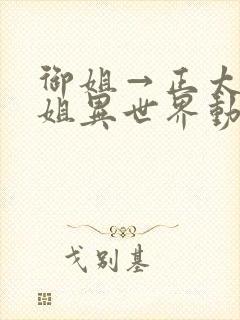 御姐→正太
姐異世界動
戈别基